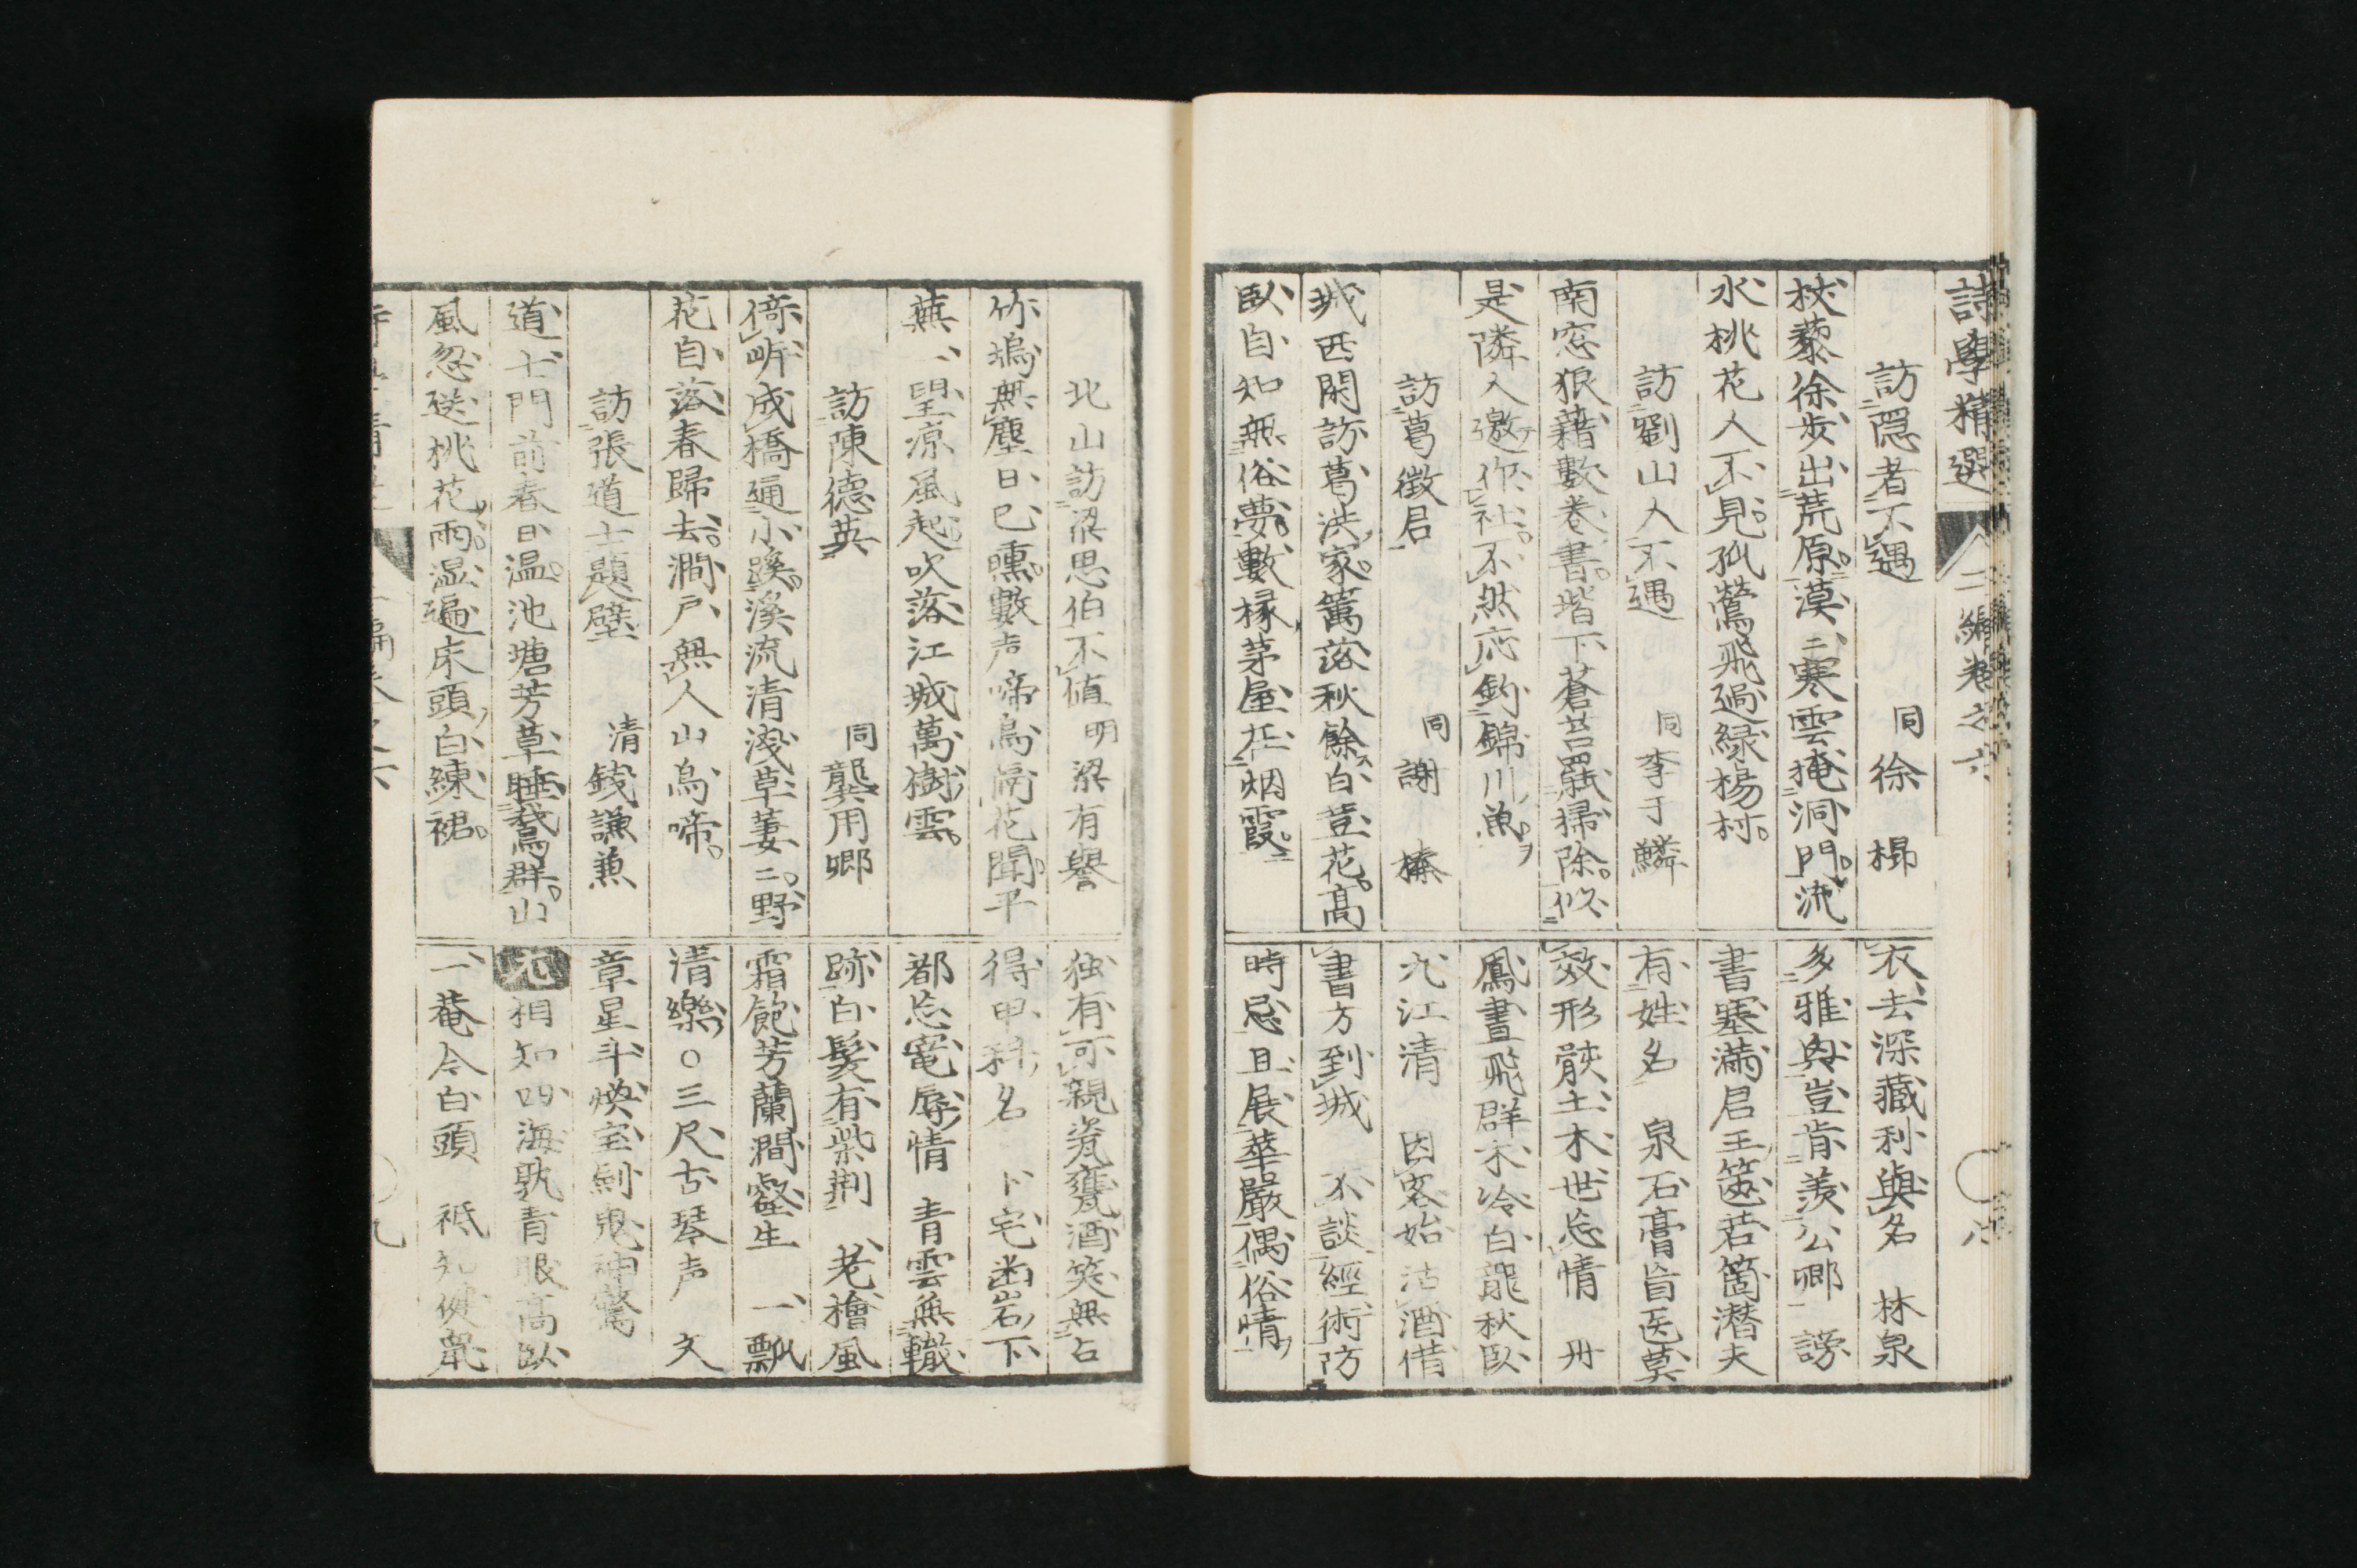 詩學精選 二編卷之六
訪隠者不遇 同徐楊
杖藜徐步出荒原漠〻寒雲掩洞門流
水桃花人不見孤鶯飛過緑楊村
訪劉山人不遇 同李于鱗
南窓狼藉數巻書堦下蒼苔嬾掃除似
是隣人邀作社不然応釣錦川魚
訪葛徵君 同謝榛
城西閑訪葛洪家籬落秋餘白荳花高
臥自知無俗夢數椽茅屋在烟霞
衣去深藏利與名 林泉
多雅與豈肯羨公卿 謗
書塞滿君王篋若箇潜夫
有姓名 泉石膏盲医莫
效形骸土木世忘情 丹
鳳晝飛群木冷白龍秋臥
九江清 因客始沽酒借
書方到城 不談經術防
時忌且展華嚴偶俗情
北山訪梁思伯不値 明梁有譽
竹塢無塵日已曛數声啼鳥隔花聞平
蕪一望凉風起吹落江城萬樹雲
訪陳德英 同龔用卿
倚岍成橋通小蹊溪流清淺草萋〻野
花自落春歸去澗戶無人山鳥啼
訪張道士題壁 清錢謙兼
道士門前春日温池塘芳草睡鵞群山
風忽送桃花雨湿遍床頭白練裙
独有可親瓷甕酒笑無占
得甲科名 卜宅幽岩下
都忘寵辱情 青雲無轍
跡白髮有紫荆 老檜風
霜飽芳蘭澗壑生 一瓢
清樂○三尺古琴声 文
章星斗煥宝剣鬼神驚
相知四海孰青眼高臥
一菴今白頭 祗知健羸
九